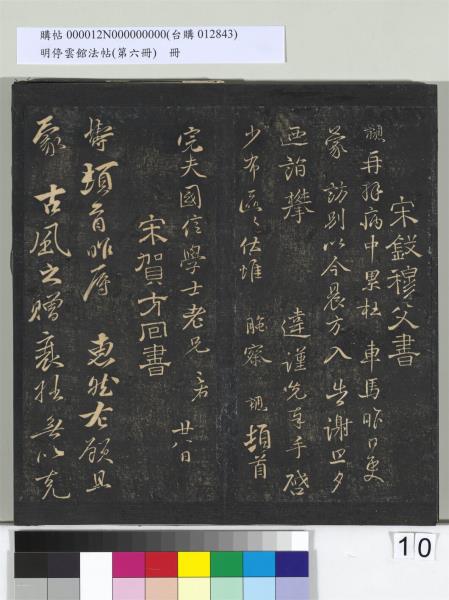 購帖 000012N000000000(台購 012843)
明停雲館法帖(第六冊) 冊
宋錢穆父書
勰再拜病中累枉 車馬昨日更
蒙 訪別以今晨方入 告謝旦夕
迺詣攀 違謹先奉手啓
少布區區伏惟 照察 勰頓首
完夫國信學士老兄 廿八日
宋賀方回書
鑄頓首昨辱 惠然左顧且
蒙 古風之贈衰拙無以克
10